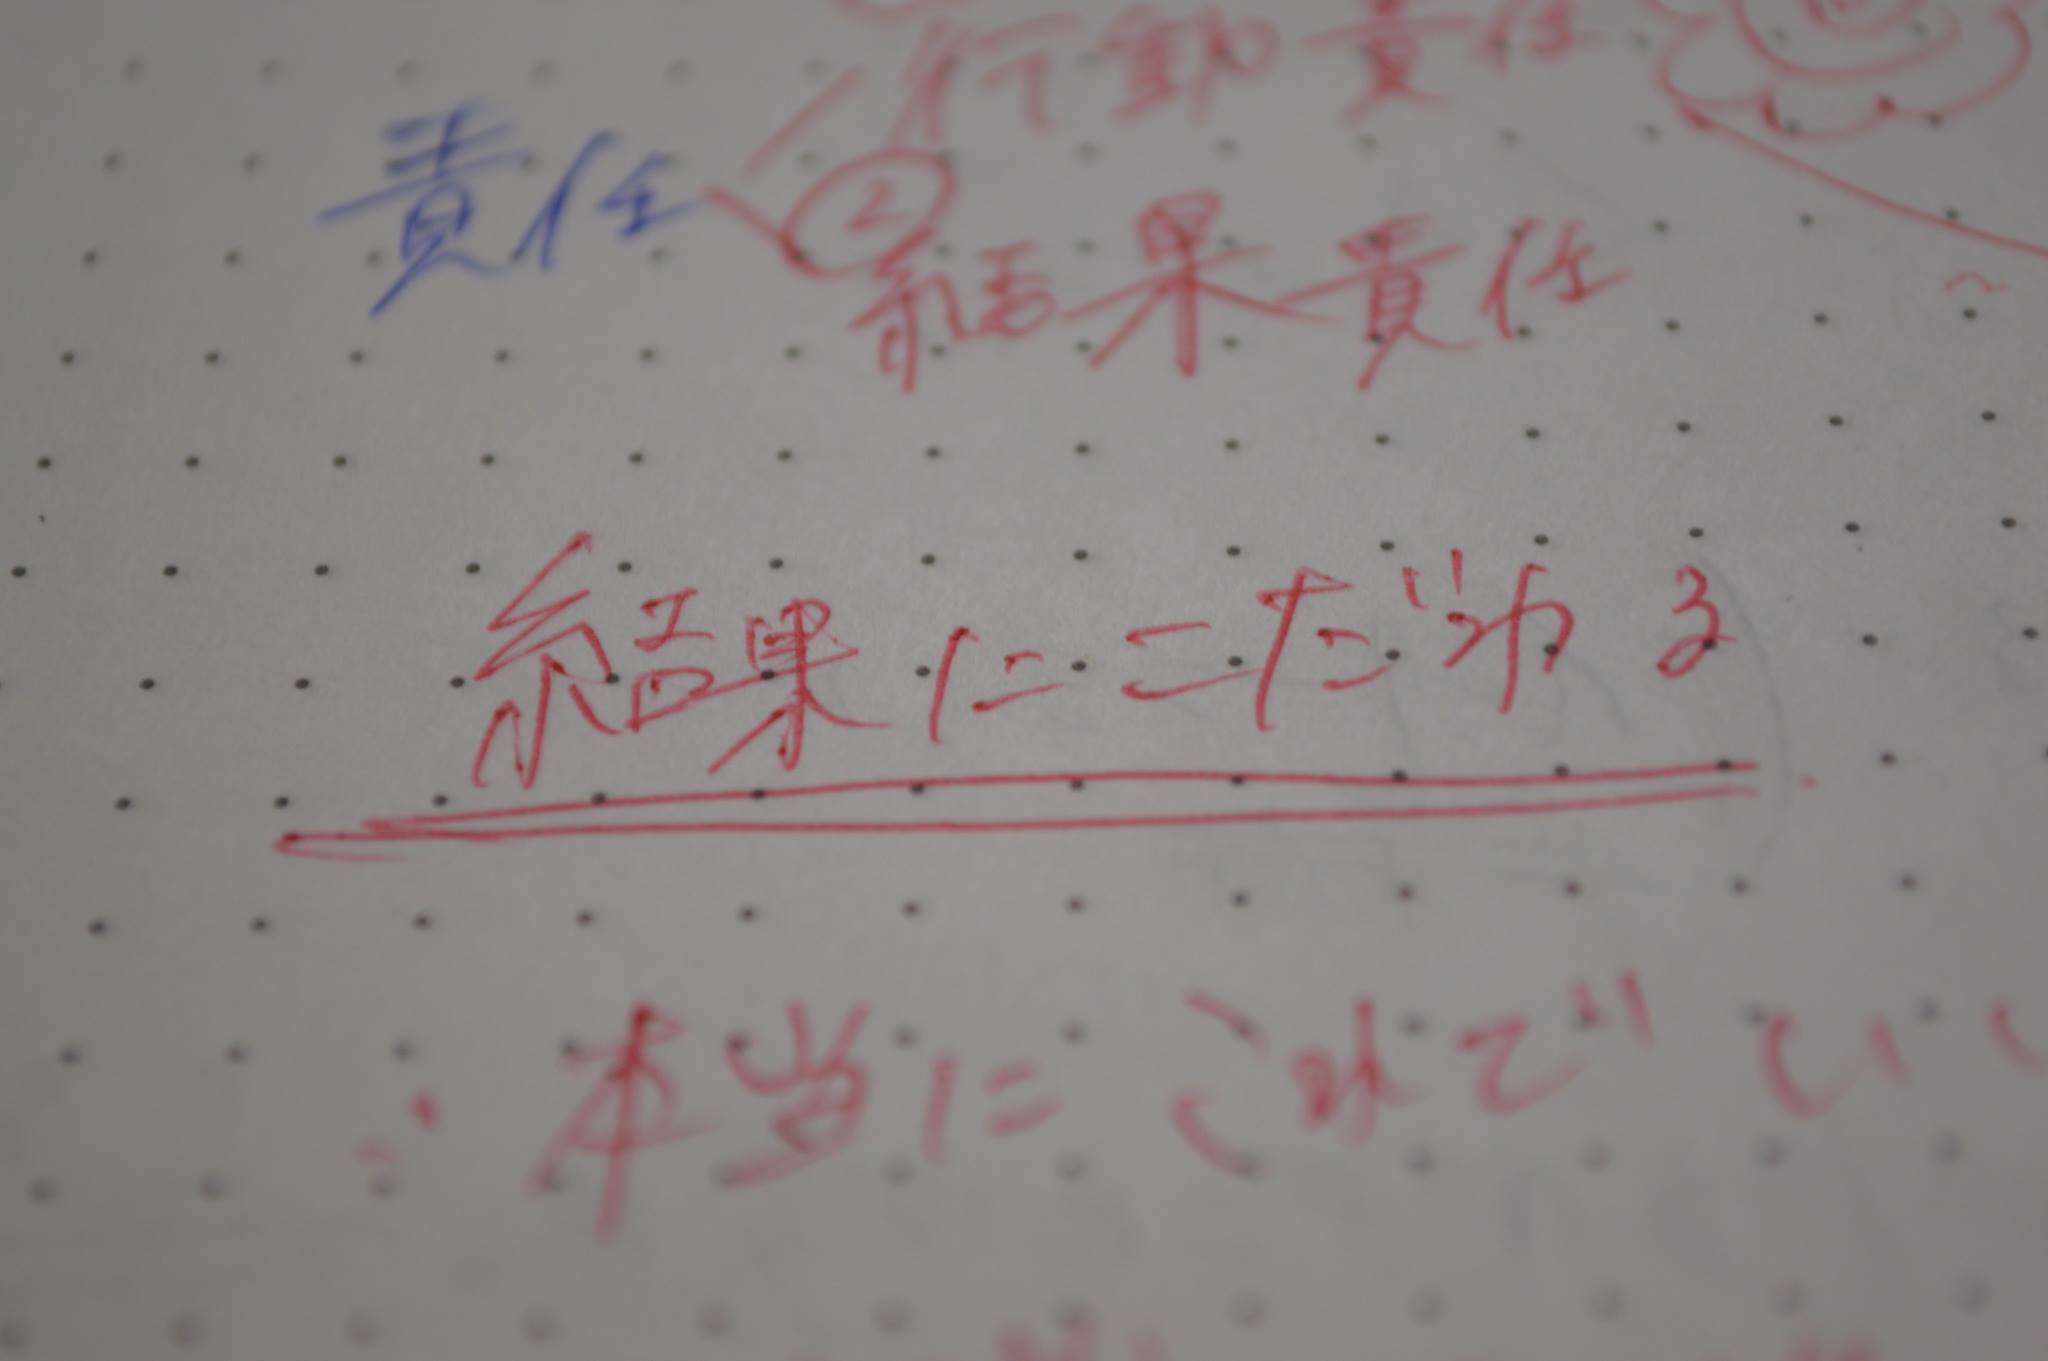 行動責任
責任
②結果責任
結果にこだわる
∴本当にこれでいい